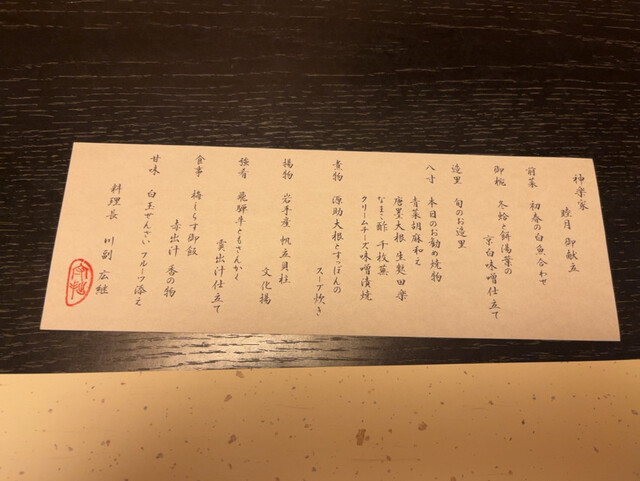 神楽家
睦月 御献立
前菜 初春の白魚合わせ
御椀 冬蛤と餅湯葉の
京白味噌仕立て
造里 旬のお造里
八寸 本日のお勧め焼物
青菜胡麻和え
唐墨大根 生麩田楽
なまこ酢 千枚蕪
クリームチーズ味噌漬焼
煮物 源助大根とすっぽんの
スープ炊き
揚物 岩手産 帆立貝柱
文化揚
強肴 飛騨牛ともさんかく
貢出汁仕立て
食事 梅しらす御飯
赤出汁 香の物
甘味 白玉ぜんざい フルーツ添え
料理長 川副 広継